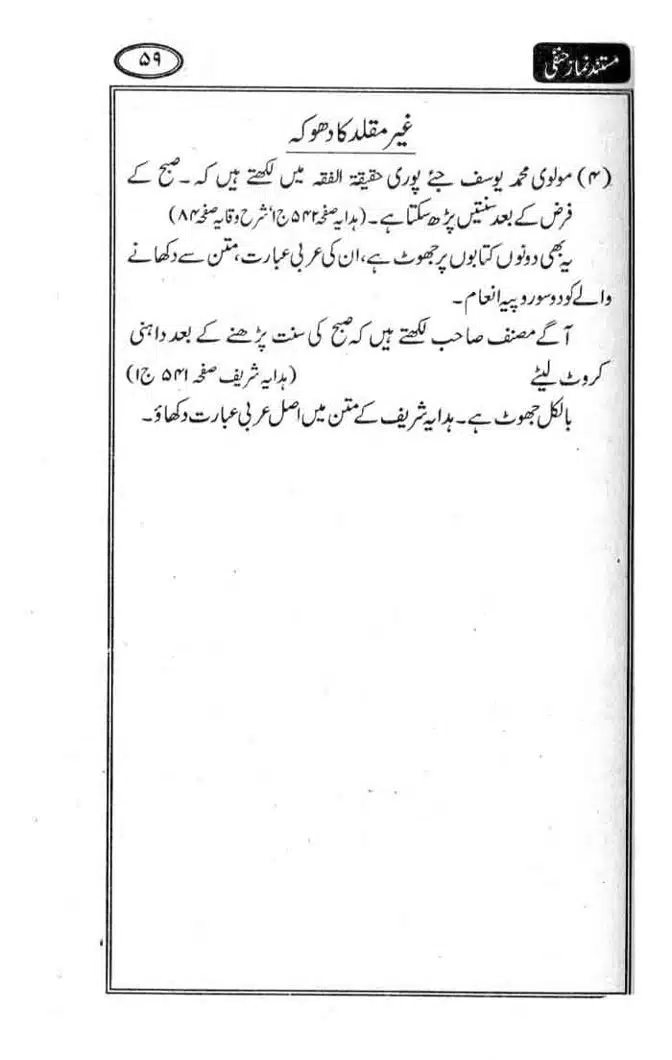 مستند نماز حنفی
۵۹
غیر مقلد کا دھوکہ
(۴) مولوی محمد یوسف جئے پوری حقیقۃ الفقہ میں لکھتے ہیں کہ ۔ صبح کے
فرض کے بعد سنتیں پڑھ سکتا ہے۔ (ہدایہ صفحہ ۵۴۲ ج ۱' شرح وقایہ صفحہ ۸۴)
یہ بھی دونوں کتابوں پر جھوٹ ہے، ان کی عربی عبارت، متن سے دکھانے
والے کو دو سو روپیہ انعام۔
آگے مصنف صاحب لکھتے ہیں کہ صبح کی سنت پڑھنے کے بعد داہنی
کروٹ لیٹے (ہدایہ شریف صفحہ ۵۴۱ ج ۱)
بالکل جھوٹ ہے۔ ہدایہ شریف کے متن میں اصل عربی عبارت دکھاؤ۔